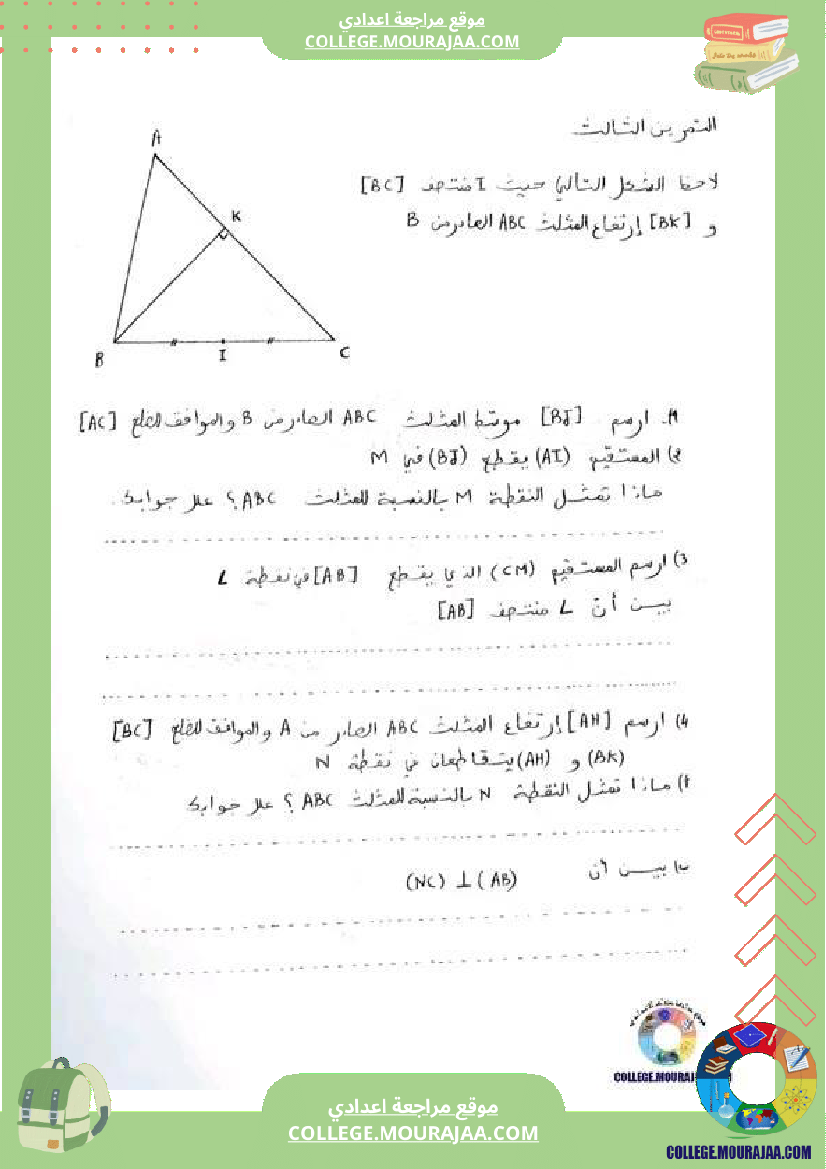 موقع مراجعة اعدادي
COLLEGE.MOURAJAA.COM
التمرين الثالث
لاحظ الشكل التالي حيث I منتصف [BC]
و [BK] إرتفاع المثلث ABC الصادر من B
A
K
B
I
C
1. ارسم [BJ] موسط المثلث ABC الصادر من B والموافق للضلع [AC]
2) المستقيم (AI) يقطع (BJ) في M
ماذا تمثل النقطة M بالنسبة للمثلث ABC ؟ علل جوابك.
3) ارسم المستقيم (CM) الذي يقطع [AB] في نقطة L
بين أن L منتصف [AB]
4) ارسم [AH] إرتفاع المثلث ABC الصادر من A والموافق للضلع [BC]
(BK) و (AH) يتقاطعان في نقطة N
أ) ماذا تمثل النقطة N بالنسبة للمثلث ABC ؟ علل جوابك
ب) بين أن (AB) ⊥ (NC)
COLLEGE.MOURAJ
موقع مراجعة اعدادي
COLLEGE.MOURAJAA.COM
COLLEGE.MOURAJAA.COM